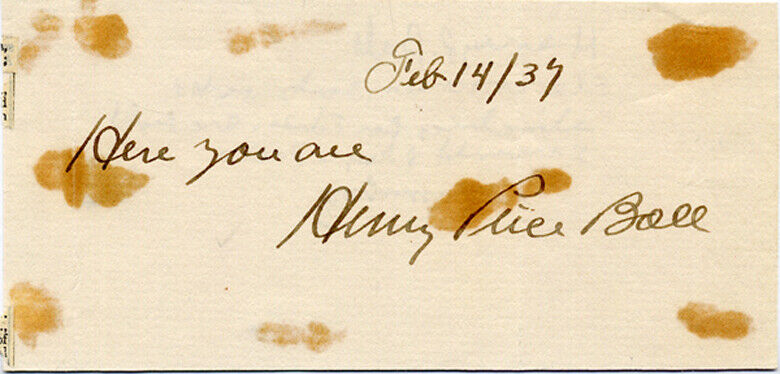 Feb 14/37
Here you are
Henry Price Ball